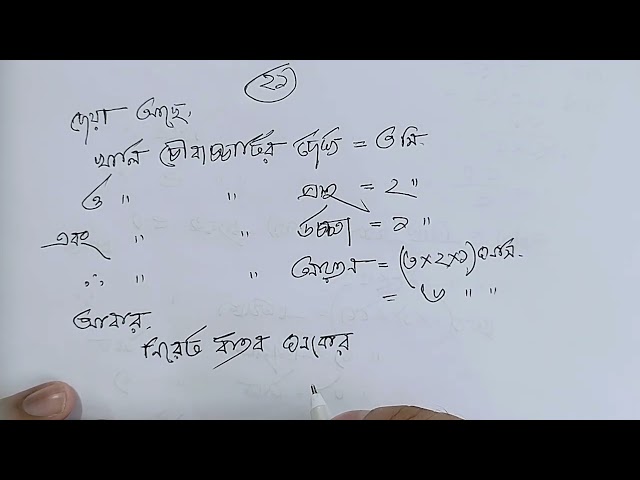 ২১
দেয়া আছে,
খালি চৌবাচ্চাটির দৈর্ঘ্য = ৩ মি.
ও " " প্রস্থ = ২ "
এবং " " উচ্চতা = ১ "
∴ " " আয়তন = (৩×২×১) ঘনমি.
= ৬ " "
আবার,
নিরেট ধাতব ঘনকের